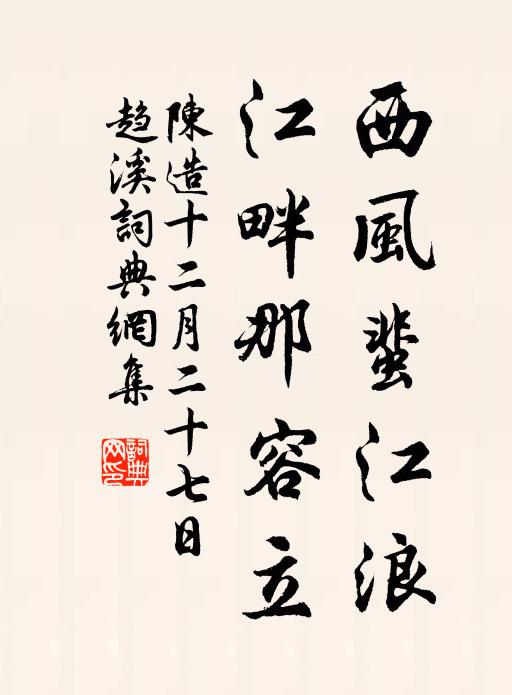 西風蜚江浪
江畔那容立
陳造十二月二十七日
趋溪詞典網集
詞典網印